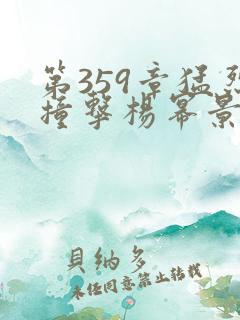 第359章猛烈
撞擊楊冪景
貝納多
未經同意禁止轉載